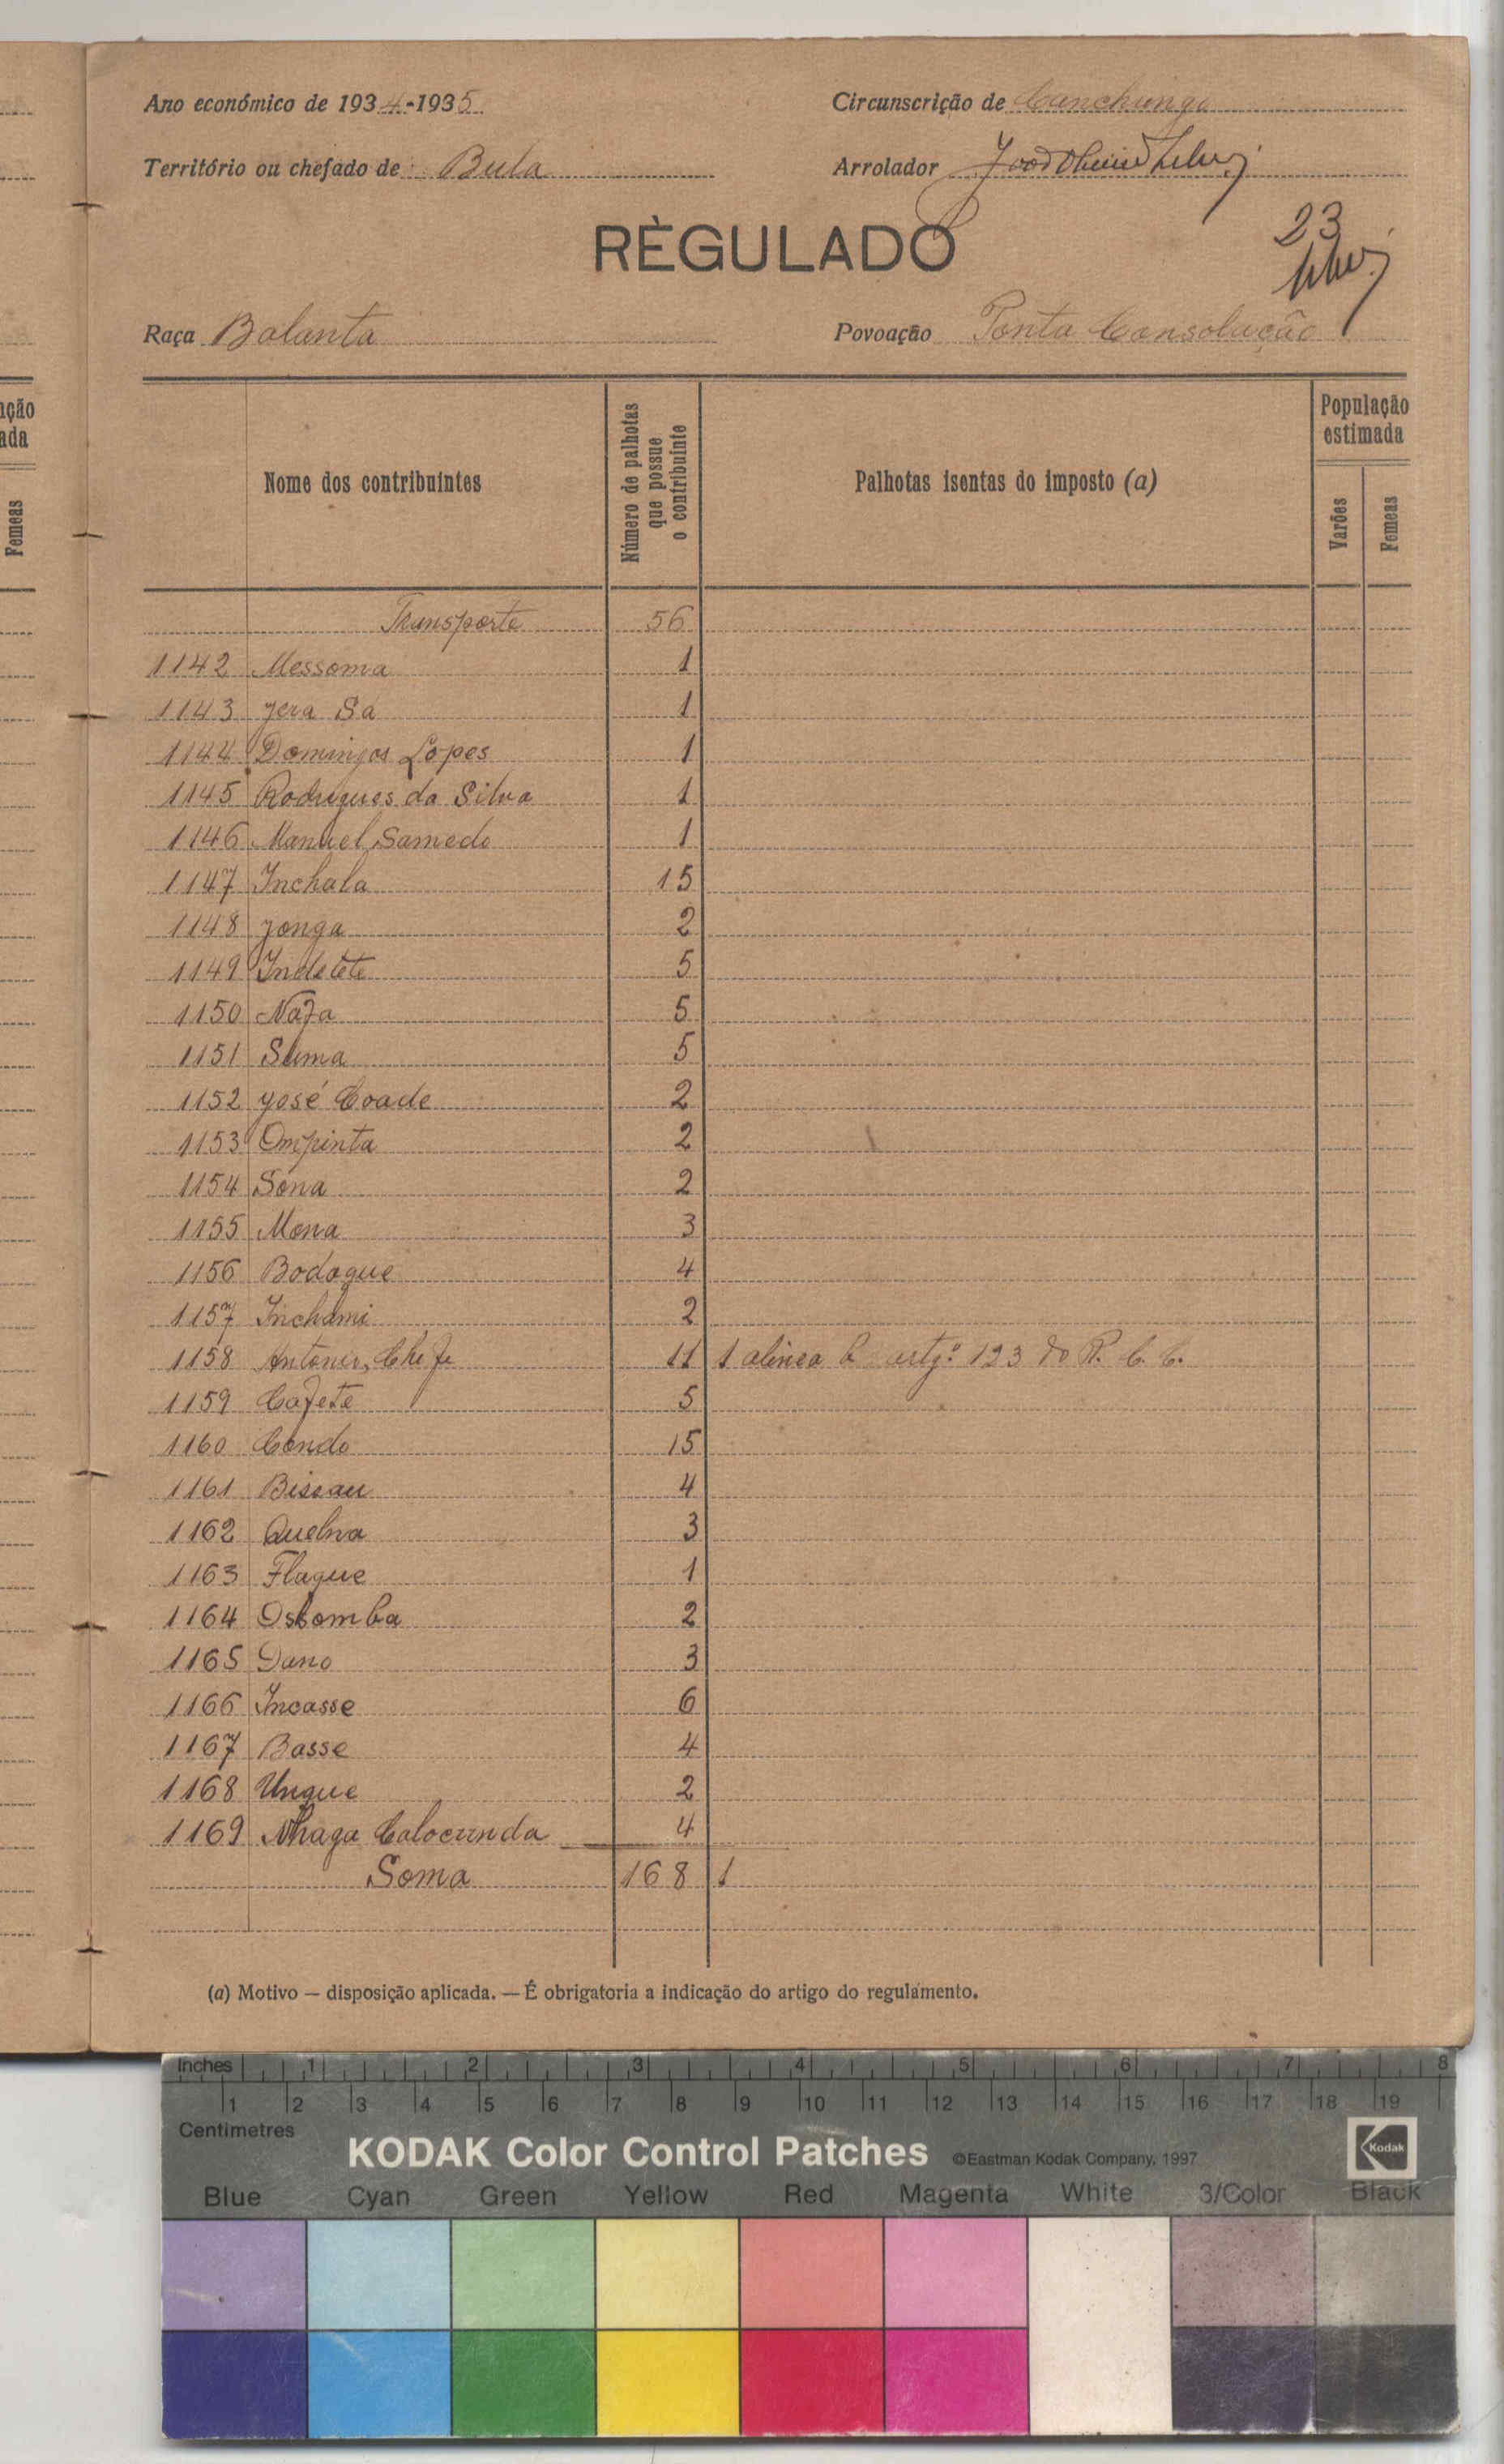 Ano económico de 1934-1935
Circunscrição de Canchungo
Território ou chefado de Bula
Arrolador
REGULADO
23
Raça Balanta
Povoação Ponta Consolação
nção
ada
Femeas
Nome dos contribuintes
Número de palhotas que possue o contribuinte
Palhotas isentas do imposto (a)
População estimada
Varões
Femeas
Transporte 56
1142 Messoma 1
1143 Jera Sá 1
1144 Domingos Lopes 1
1145 Rodrigues da Silva 1
1146 Manuel Samedo 1
1147 Inchala 15
1148 Jonga 2
1149 Indetete 5
1150 Nafa 5
1151 Suma 5
1152 José Coade 2
1153 Ompinta 2
1154 Sona 2
1155 Mona 3
1156 Bodaque 4
1157 Inchami 2
1158 Antonio, Chefe 11 1 alinea b artgº 123 do R. C. C.
1159 Cafete 5
1160 Condo 15
1161 Bissau 4
1162 Quelna 3
1163 Flaque 1
1164 Osbomba 2
1165 Dano 3
1166 Incasse 6
1167 Basse 4
1168 Ungue 2
1169 Nhaga Calocunda 4
Soma 168 1
(a) Motivo — disposição aplicada. — É obrigatoria a indicação do artigo do regulamento.
Inches 1 2 3 4 5 6 7 8
1 2 3 4 5 6 7 8 9 10 11 12 13 14 15 16 17 18 19
Centimetres
KODAK Color Control Patches ©Eastman Kodak Company, 1997 Kodak
Blue Cyan Green Yellow Red Magenta White 3/Color Black